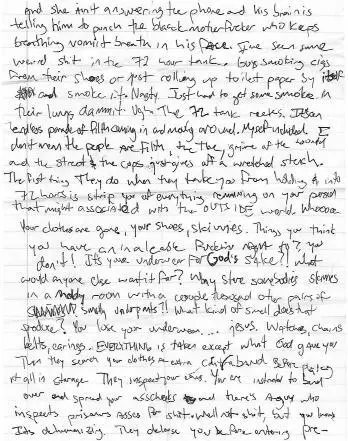 And she isn't answering the phone and his brain is
telling him to punch the black motherfucker who keeps
breathing vomit breath in his face. I've seen some
weird shit in the 72 hour tank. Guys smoking cigs
from their shoes or just rolling up toilet paper by itself
and smoke it. Nasty. Just had to get some smoke in
their lungs dammit. Ugh. The 72 tank reeks. It's an
endless parade of filth coming in and moving around. Myself included. I
don't mean the people are filth, the grime of the
and the street & the cops just gives off a wretched stench.
The first thing They do when they take you from holding & into
72 hours is strip you of everything remaining on your person
that might associated with the OUTSIDE world. Whooooo.
Your clothes are gone, your shoes, skivvies. Things you think
you have an inalienable fuckin right to? you
don't! It's your underwear for God's sake!! What
would anyone else want it for? Why store somebodies skivvies
in a moldy room with a couple thousand other pairs of
smelly underpants!! What kind of smell does that
produce? You lose your underwear... jesus. Watches, chains
belts, earrings. EVERYTHING is taken except what God gave you
Then they search your clothes for extra contraband before placing
it all in storage. They inspect your You are instructed to bend
over and spread your asscheeks and there's a guy who
inspects prisoners asses for shit. Well not shit, but you know
It's dehumanizing. They debase you before entering pre-